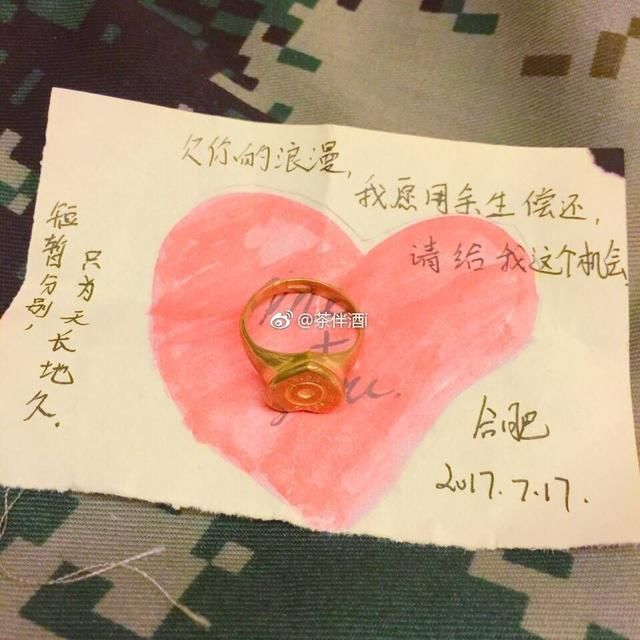 欠你的浪漫，
我愿用余生偿还，
请给我这个机会
短暂分别，
只为天长地久.
@茶伴酒i
+
you.
合肥
2017.7.17.